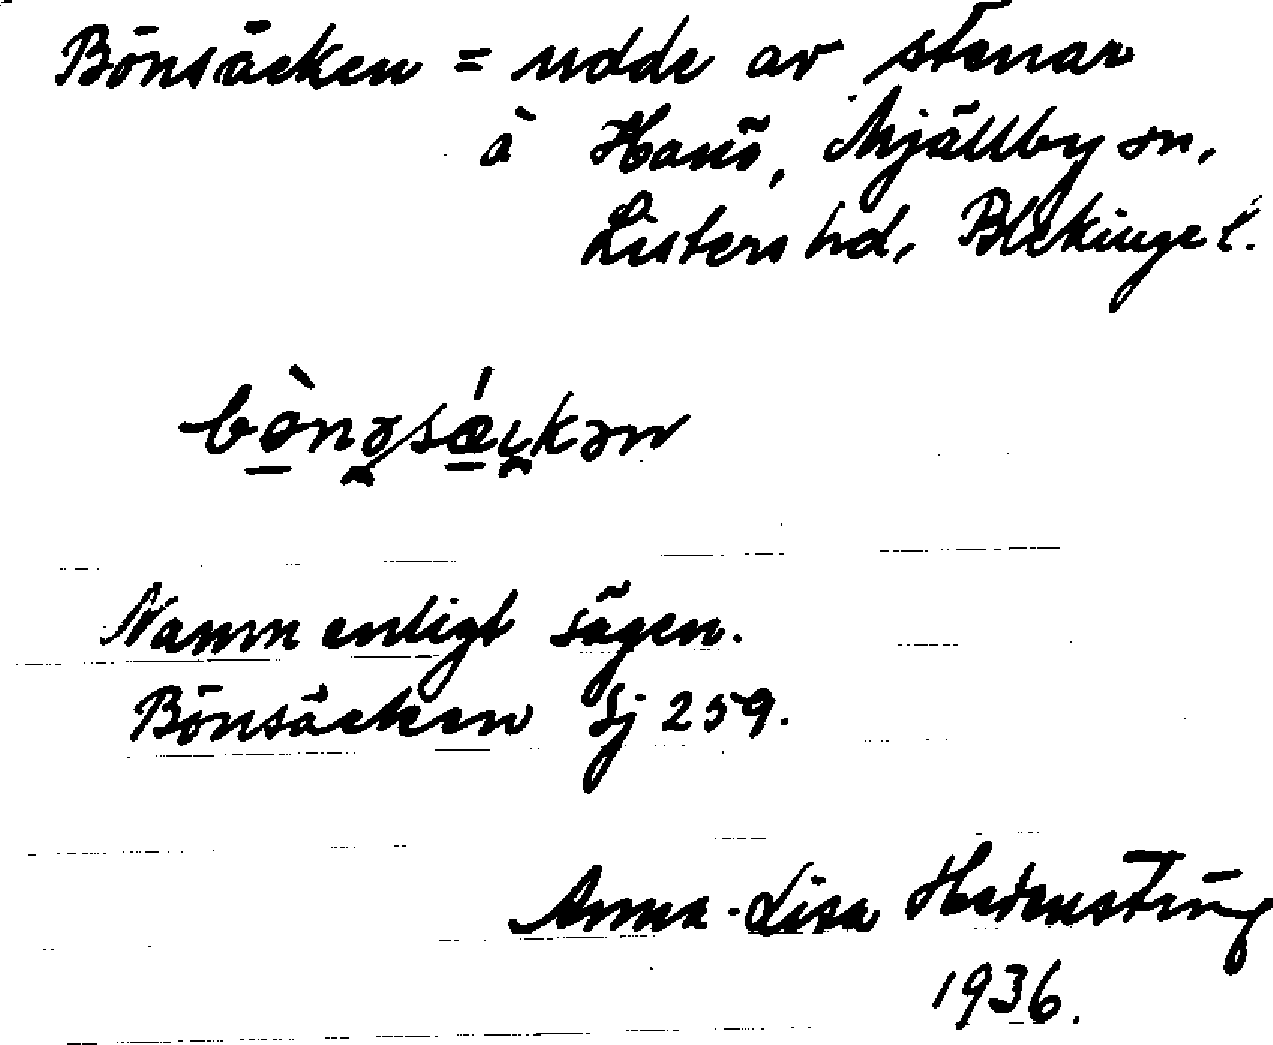 Bönsäcken = udde av stenar
å Hanö, Mjällby sn,
Listers hd, Blekinge l.
Namn enligt sägen.
Bönsäcken Sj 259.
Anna-Lisa
1936.